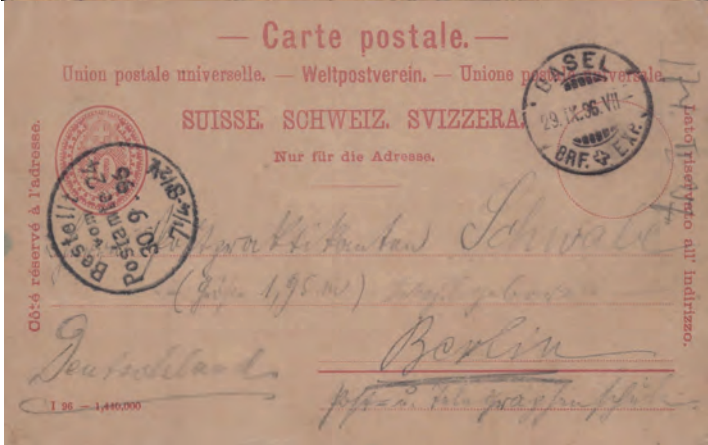 — Carte postale. —
Union postale universelle. — Weltpostverein. — Unione postale universale.
SUISSE. SCHWEIZ. SVIZZERA.
Nur für die Adresse.
Côté réservé à l'adresse.
Lato riservato all' indirizzo.
BASEL
29.IX.96.VII
BRF. EXP.
Bestellt
Postamte 24
30. 9. 96
Postpraktikanten Schwabe
(Größe 1,95 m)
Berlin
Deutschland
Post- u. Telegraphenschule
I 96 — 1,440,000